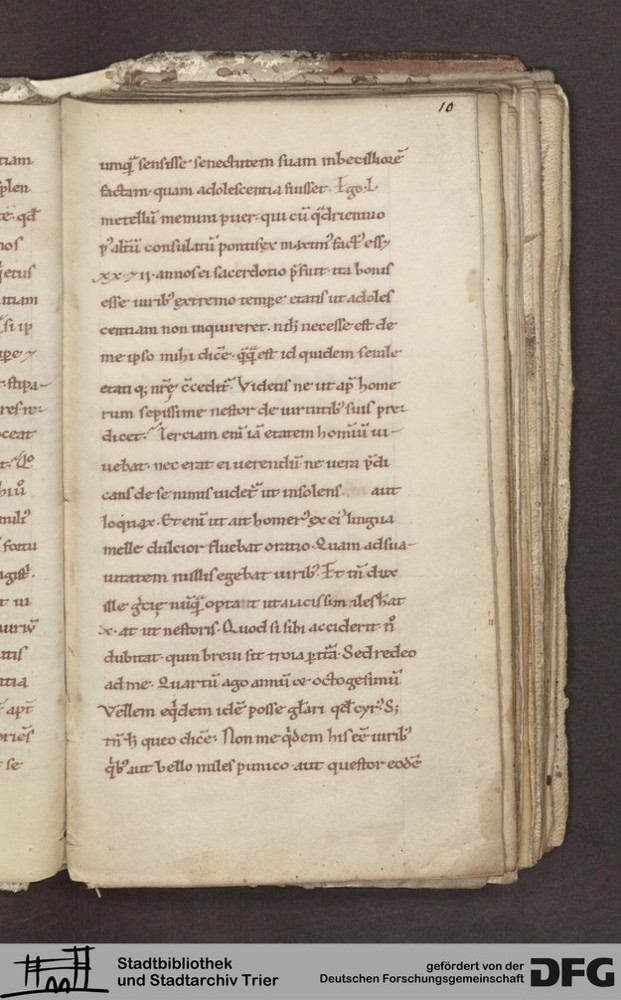 10
umq̄ sensisse senectutem suam inbecilliorē
factam· quam adolescentia fuisset· Ego· L·
metellū memini puer· qui cū q̄driennio
p' altū consulatū pontifex maxim' fact' ess&
xx· 7 ii· annos ei sacerdotio p̄fuit· ita bonis
esse uirib' extremo tempe etatis ut adoles
centiam non inquireret· nih̄ necesse est de
me ipso mihi dicē· q̄q̄ est id quidem senile
etati q; nrę c̄cedit'· Videtis ne ut ap̄ home
rum sepissime nestor de uirtutib' suis pre
dicet· Terciam enī iā etatem hominū ui
uebat· nec erat ei uerendū ne uera p̄di
cans de se nimis uidet' ut insolens aut
loquax· Et enī ut ait homer' ex ei' lingua
melle dulcior fluebat oratio· Quam ad sua
uitatem nullis egebat uirib'· Et tn̄ dux
ille gr̄cię nūq̄ optat ut aiacis similes hat
x· at ut nestoris· Quod si sibi acciderit n̄
dubitat· quin breui sit troia p̱itā· Sed redeo
ad me· Quartū ago annū & octogesimū
Vellem eq̄dem idē posse gl̄ari qd̄ cyr'· S;
tn̄ h̄ queo dicē· Non me q̄dem his eē uirib'
q̄b' aut bello miles punico· aut questor eodē
tiam
plen
te· qd̄
nos
etus
itiam
si ip
pe 7
stipa
res re
ceat
fortu
ui
tis
tia
apt̄
se
Stadtbibliothek
und Stadtarchiv Trier
gefördert von der
Deutschen Forschungsgemeinschaft
DFG